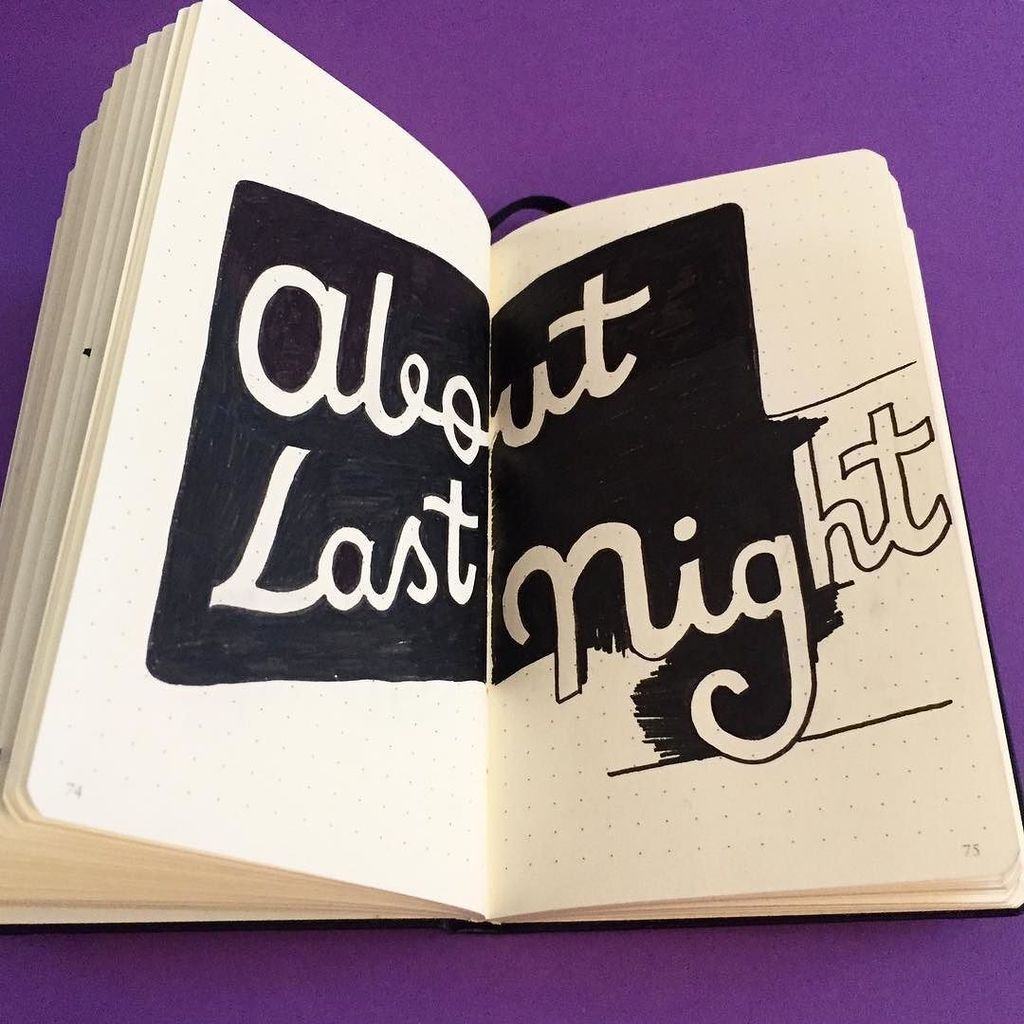 About
Last Night
74
75